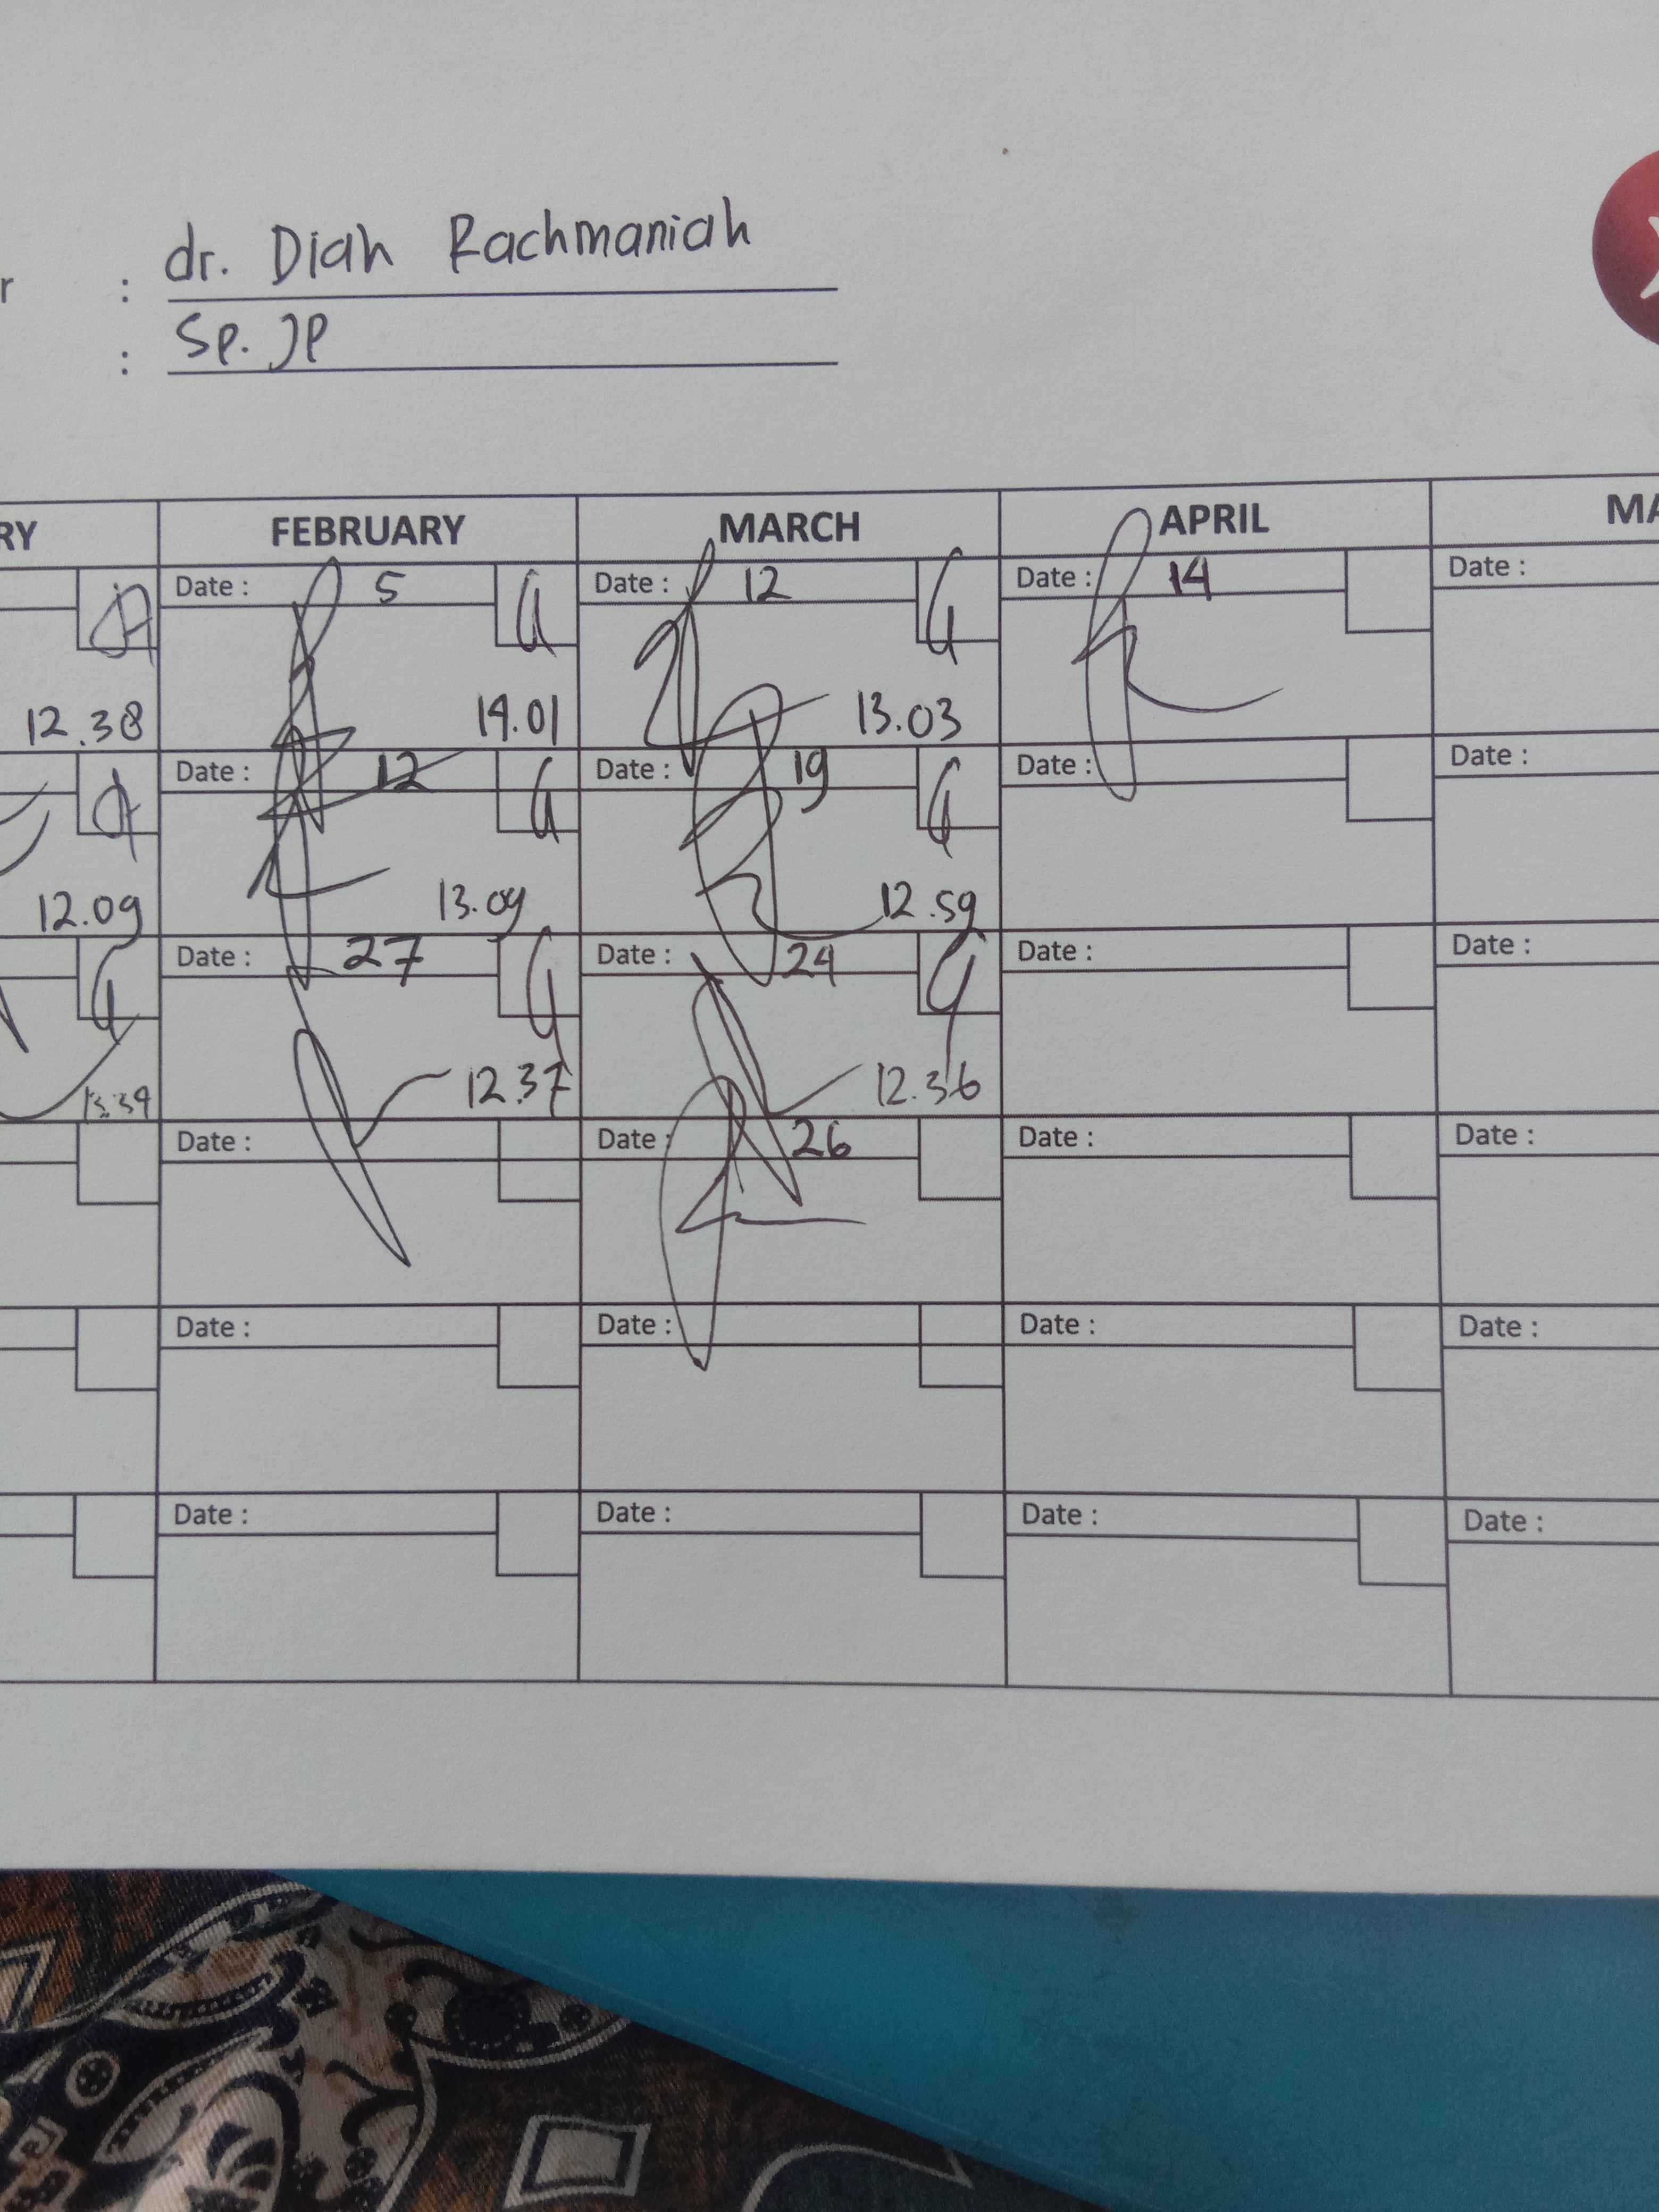 r : dr. Diah Rachmaniah
: Sp. JP
RY FEBRUARY MARCH APRIL MA
Date : 5 Date : 12 Date : 14 Date :
12.38 14.01 13.03
Date : 12 Date : 19 Date : Date :
12.09 13.09 12.59
Date : 27 Date : 24 Date : Date :
13.39 12.37 12.36
Date : Date : 26 Date : Date :
Date : Date : Date : Date :
Date : Date : Date : Date :